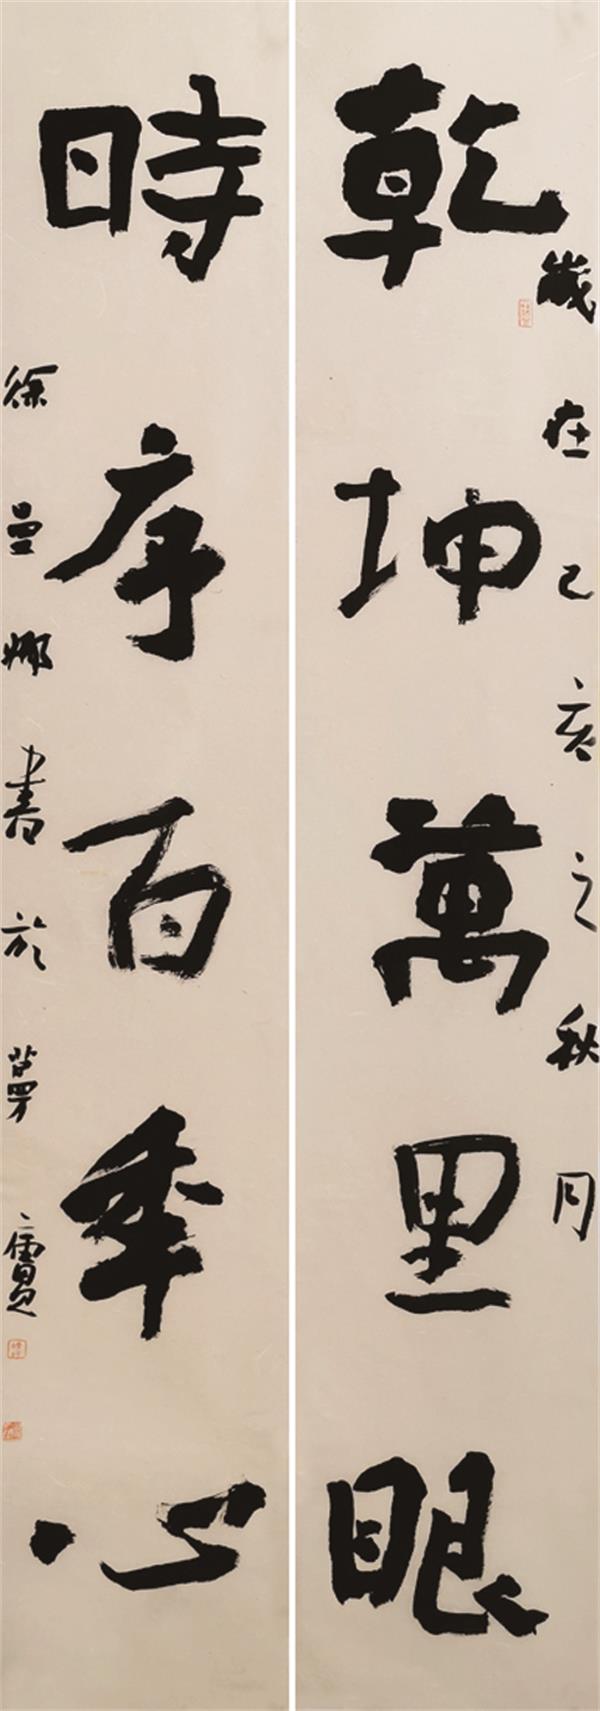 乾坤萬里眼
歲在己亥之秋月
時序百年心
徐曼娜書於夢